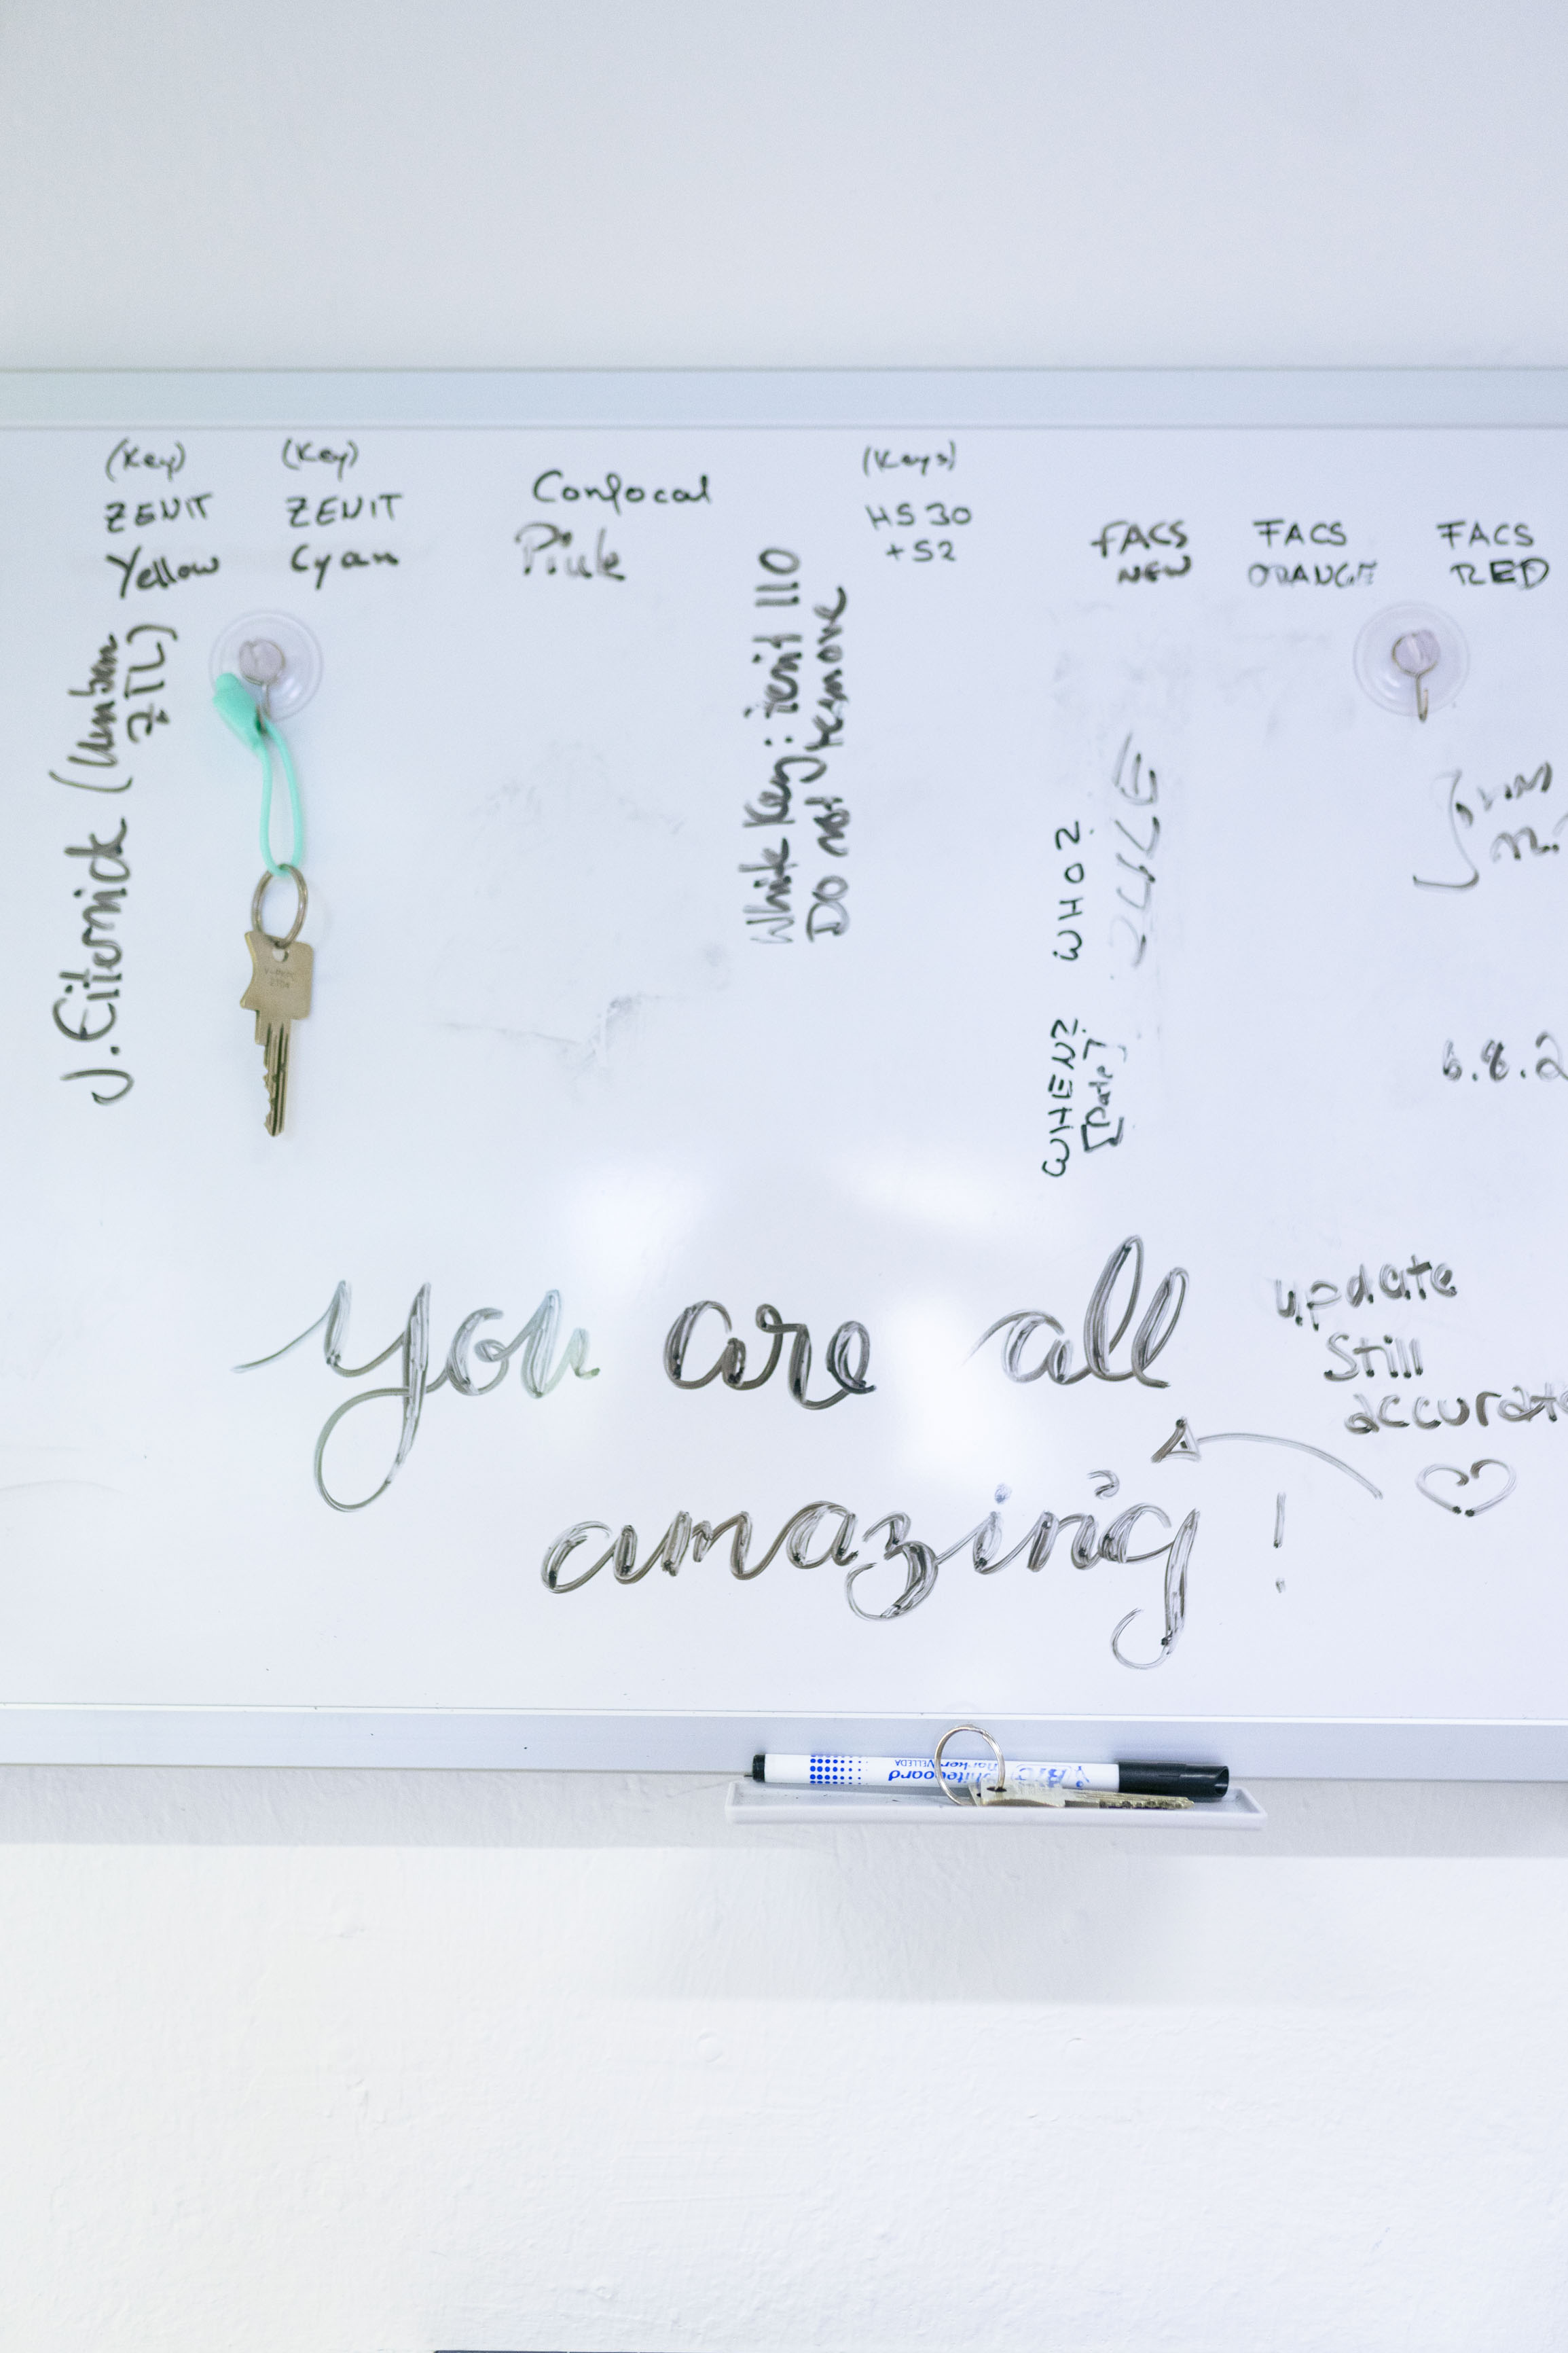 (Key)
ZENIT
Yellow
(Key)
ZENIT
Cyan
Confocal
Pink
(Keys)
HS 30
+ S2
FACS
NEW
FACS
ORANGE
FACS
RED
White Key: Zenit 110
Do not remove
WHO?
WHEN?
[Date]
6.8.2
you are all
amazing!
update
Still
accurate